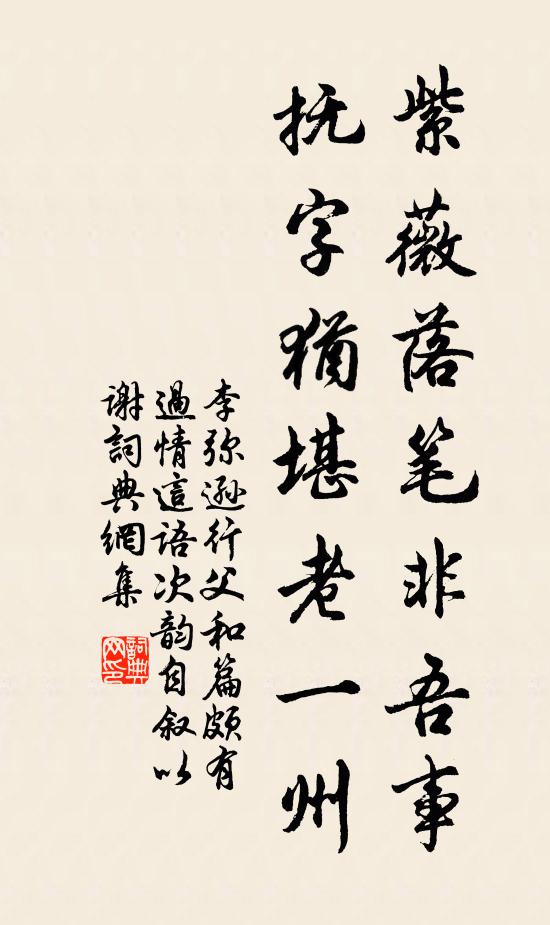 紫薇落笔非吾事
抚字犹堪老一州
李弥逊行父和篇颇有
過情這語次韵自叙以
谢詞典網集
詞典
网印